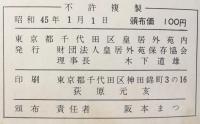 不許複製
昭和45年1月1日 頒布価 100円
東京都千代田区皇居外苑内
発行 財団法人皇居外苑保存協会
理事長 木下道雄
印刷 東京都千代田区神田錦町3の16
荻原元亥
頒布 責任者 阪本まつ